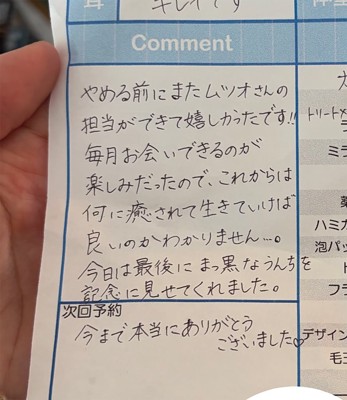 耳
キレイです
Comment
やめる前にまたムツオさんの
担当ができて嬉しかったです!!
毎月お会いできるのが
楽しみだったので、これからは
何に癒されて生きていけば
良いのかわかりません…。
今日は最後にまっ黒なうんちを
記念に見せてくれました。
次回予約
今まで本当にありがとう
ございました♡
トリート
ミラ
薬
ハミガ
泡パッ
ト
フラ
デザイン
毛玉